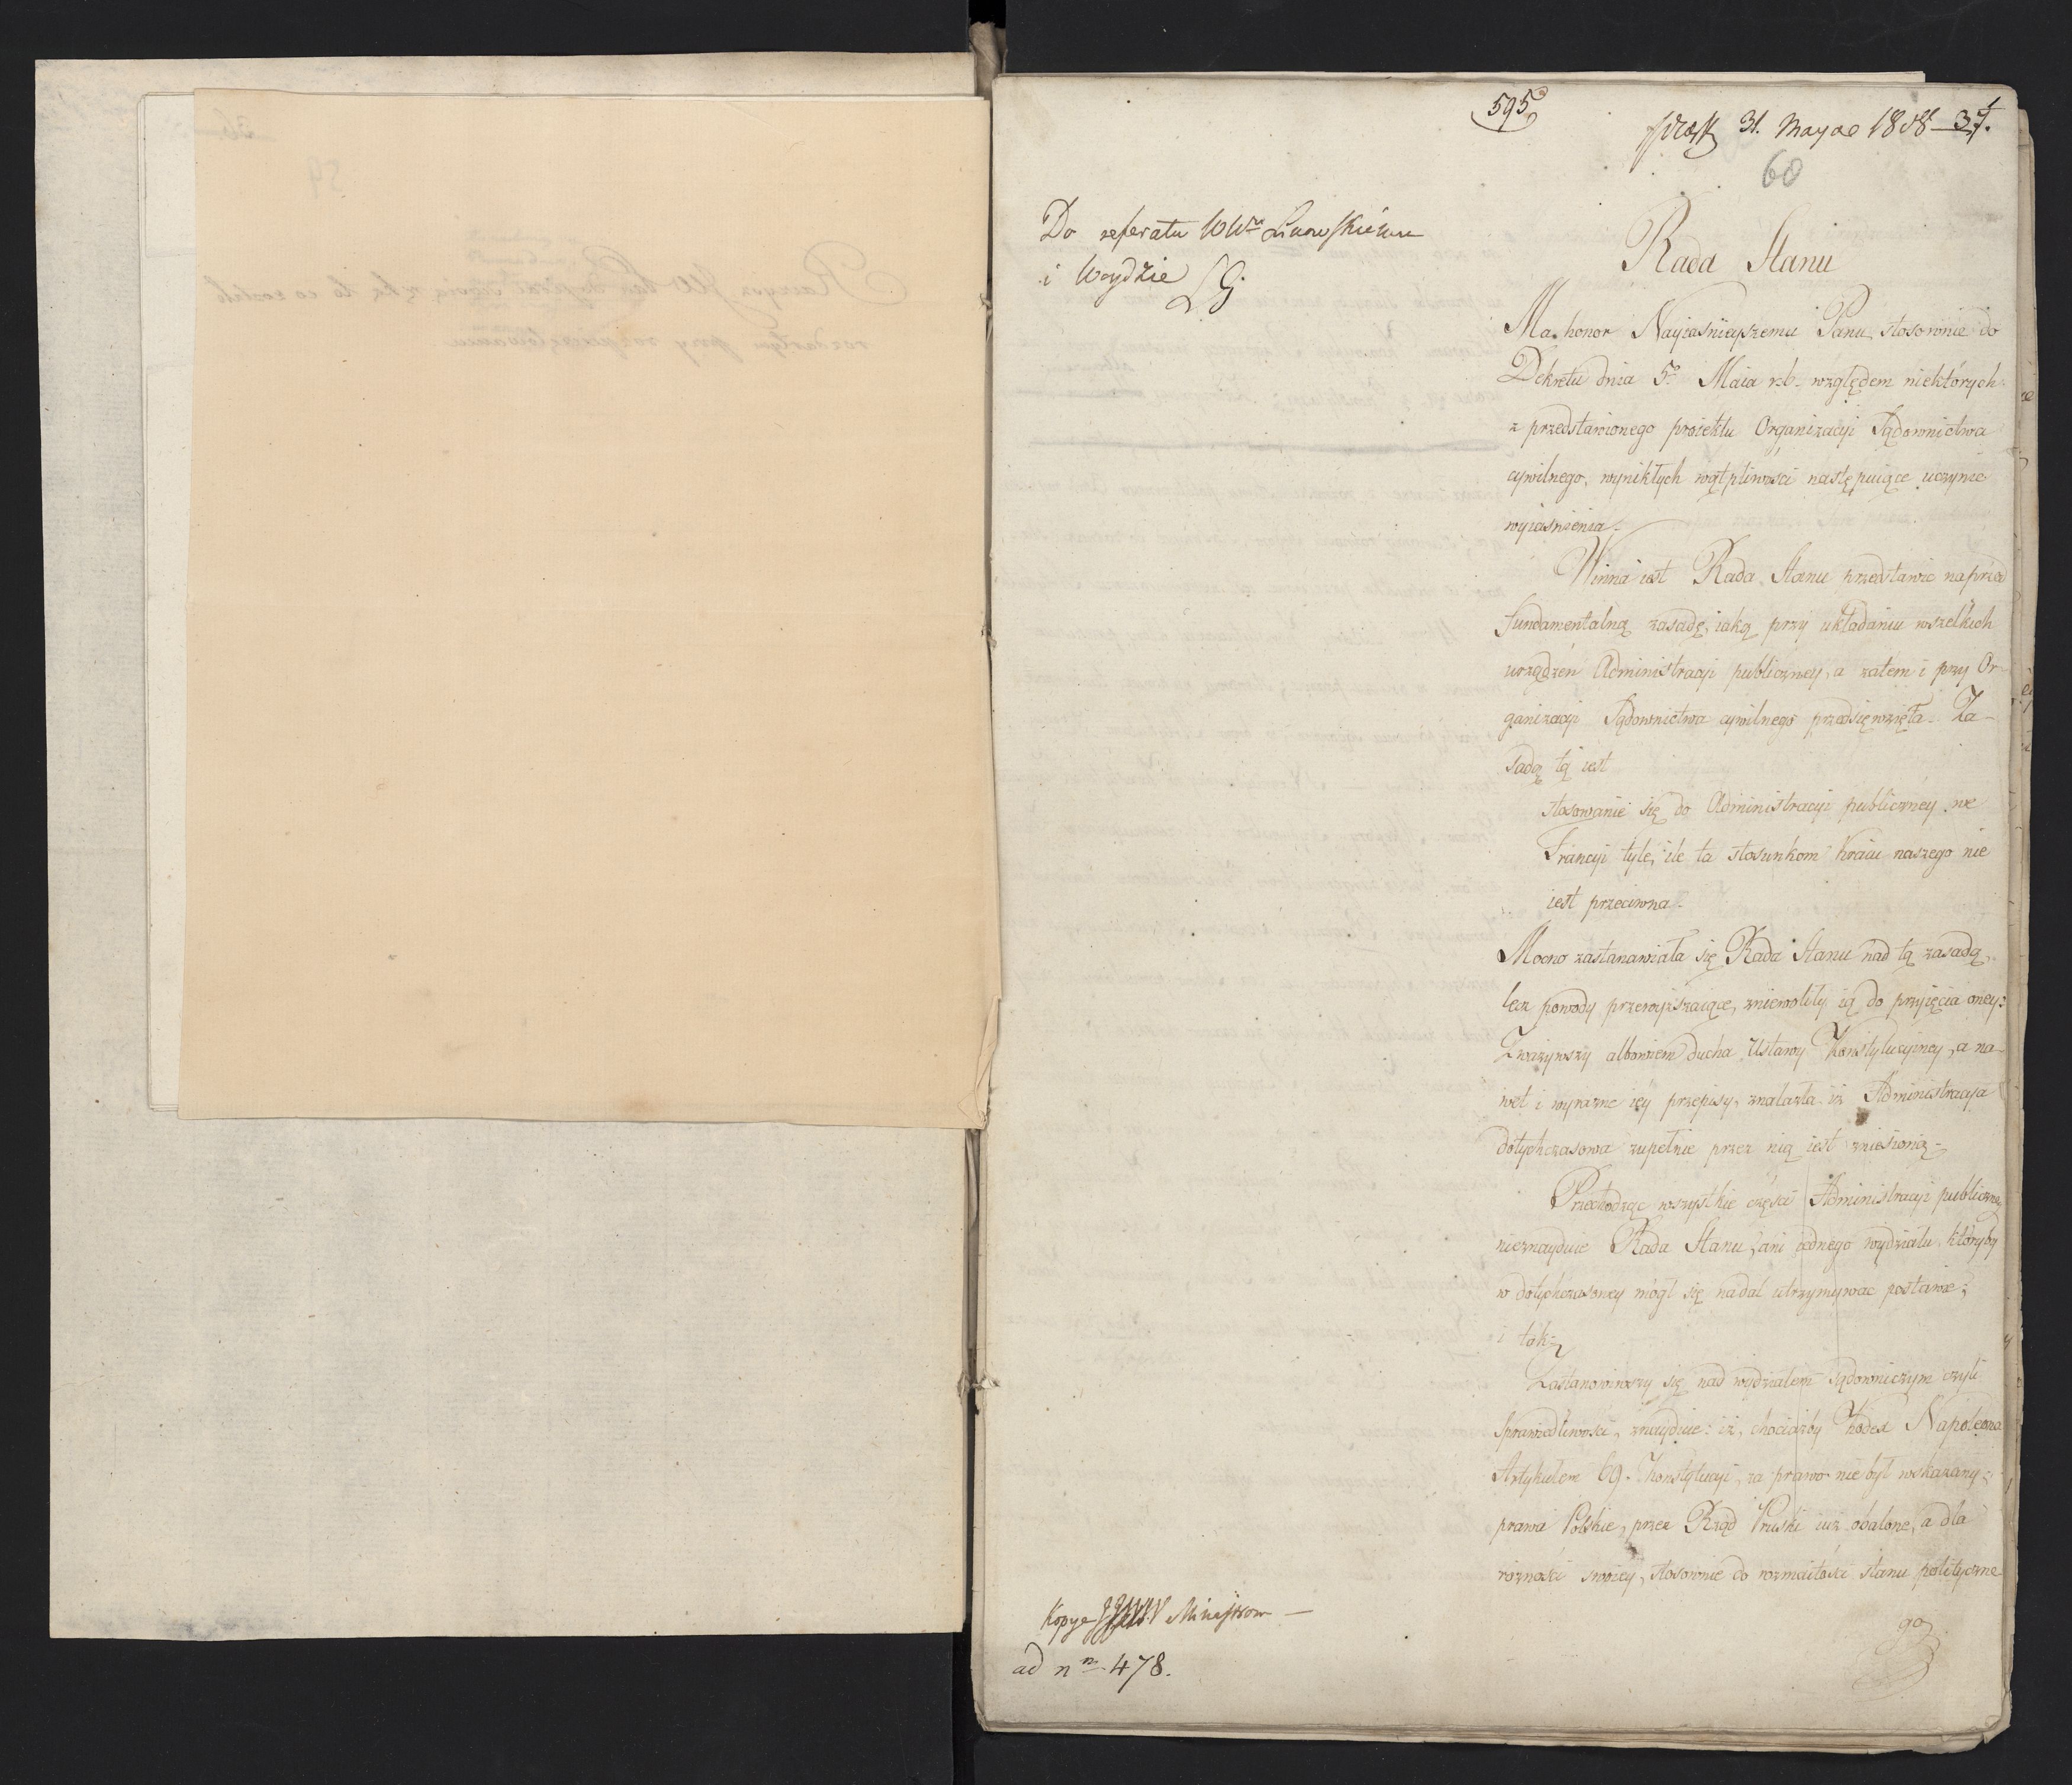 595
31. Mayae 1808 37.
60
Do referatu
i Woydzie LG.
Rada Stanu
Ma honor Nayiaśnieyszemu Panu, stosownie do
Dekretu dnia 5º Maia r.b. względem niektórych
z przedstawionego proiektu Organizacyi Sądownictwa
cywilnego, wynikłych wątpliwości następuiące uczynić
wyiasnienia.
Winna iest Rada Stanu przedstawić naprzod
fundamentalną zasadę, iaką przy układaniu wszelkich
urządzeń Administracyi publiczney, a zatem i przy Or-
ganizacyi Sądownictwa cywilnego przedsięwzięła. Za-
sadą tą iest
stosowanie się do Administracyi publiczney we
Francyi tyle, ile ta stosunkom kraiu naszego nie
iest przeciwna.
Mocno zastanawiała się Rada Stanu nad tą zasadą,
lecz powody przewyższaiące, zniewoliły ią do przyięcia oney:
Zważywszy albowiem ducha Ustawy Konstytucyiney, a na-
wet i wyrazne iey przepisy, znalazła iż Administracya
dotychczasowa zupełnie przez nią iest zniesioną-
Przechodząc wszystkie części Administracyi publiczney
nieznayduie Rada Stanu, ani iednego wydziału, któryby
w dotychczasowey mógł się nadal utrzymywac postawie;
i tak:
Zastanowiwszy się nad wydziałem Sądowniczym czyli
Sprawiedliwości, znayduie: iż, chociażby Kodex Napoleona
Artykułem 69. Konstytucyi, za prawo nie był wskazany;
prawa Polskie, przez Rząd Pruski iuż obalone, a dla
rożności swoiey, stosownie do rozmaitości stanu polityczne
go
Kopye JJWW Ministrow —
ad nm 478.